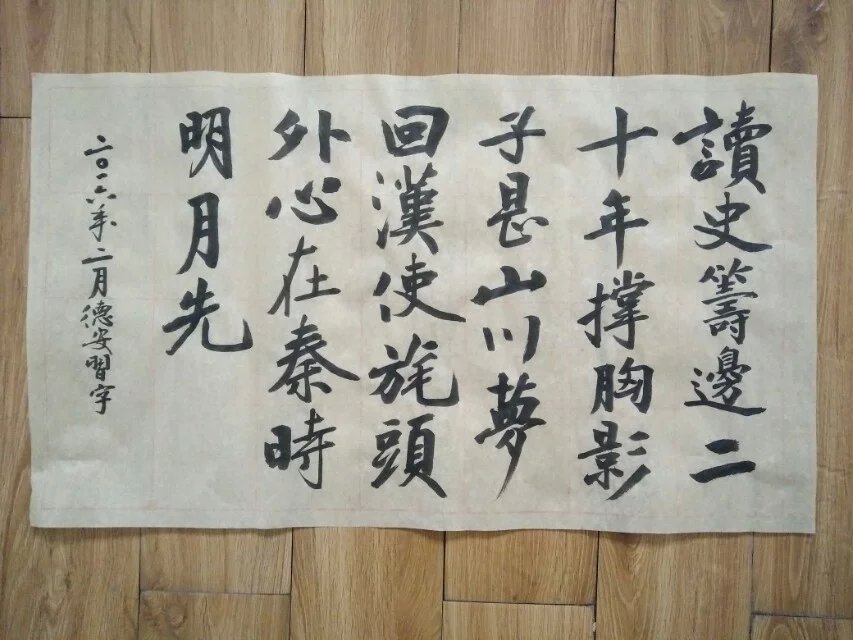 讀史籌邊二
十年撐胸影
子是山川夢
回漢使旄頭
外心在秦時
明月先
二〇一六年二月德安習字